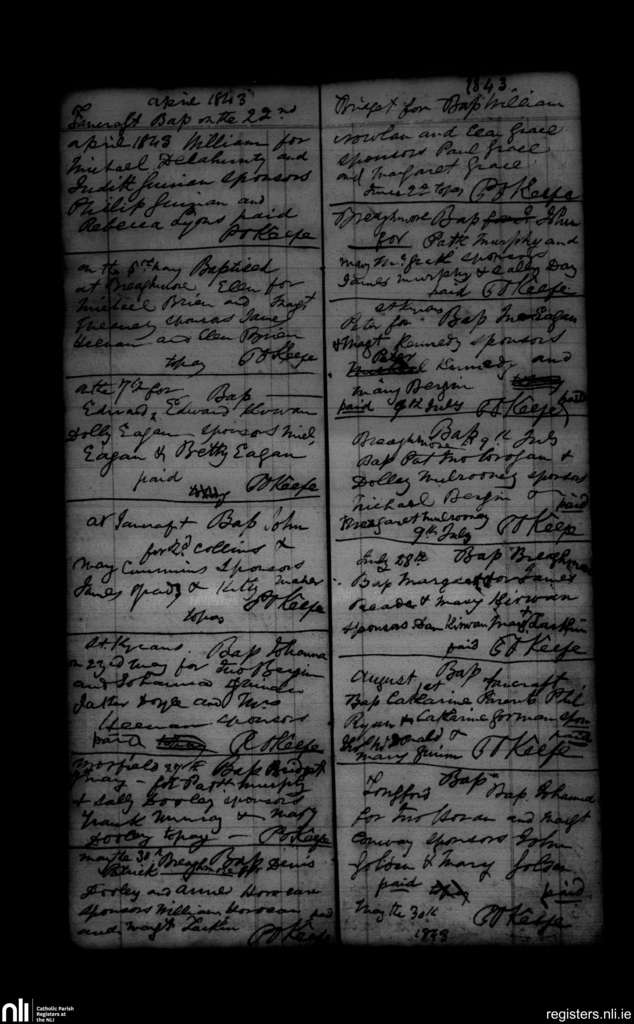 april 1843
Fancroft Bap on the 22nd
april 1843 William for
Michael Delahunty and
Judith Guinan sponsors
Philip Guinan and
Rebecca Lyons paid
P O Keefe
on the 5th may Baptised
at Breaghmore Ellen for
Michael Brien and Magt
sponsors James
Heenan and Ellen Brien
topay P O Keefe
on the 7th for Bap
Edward, Edward Kirwan
Dolly Eagan sponsors Mich
Eagan & Betty Eagan
paid P O Keefe
at Fancroft Bap John
for Collins &
May Cummins sponsors
James & Kitty Maher
topay P O Keefe
At Kyrans. Bap Johanna
on 23rd may for Jno Bergin
and Johanna Guinan
Doyle and Mrs
Heenan sponsors
paid P O Keefe
29th Bap Bridget
may - for Patk Murphy
& Sally Dooley sponsors
Frank Murray & Mary
Dooley topay - P O Keefe
may the 30th Breaghmore Bap Denis
Patrick for
Dooley and Anne Horoan
sponsors William Horoan
and Magt Larkin paid
P O Keefe
1843
Bridget for Bap William
Nowlan and Ellen Grace
sponsors Paul Grace
and Margaret Grace
June 2nd topay P O Keefe
Breaghmore Bap John
for Patk Murphy and
may sponsors
James Murphy & Sally Day
paid P O Keefe
at Kyrans
for Bap Jno Eagan
& Magt Kennedy sponsors
Peter Kennedy and
Mary Bergin
paid 9th July P O Keefe paid
Breaghmore Bap 9th July
Bap Pat Jno Corogan &
Dolley Mulrooney sponsors
Michael Bergin & paid
Margaret Mulrooney
9th July P O Keefe
July 28th Bap Breaghmore
Bap Margaret for James
Reader & Mary Kirwan
Sponsors Dan Kirwan Mary Larkin
paid P O Keefe
August Bap at Fancroft
Bap Catharine Parents Phil
Ryan & Catharine Gorman spon
McDonald &
Mary Guinan P O Keefe
Longford Bap Bap Johanna
for Jno Horan and Magt
Conway sponsors John
Golden & Mary Golden
paid paid
May the 30th P O Keefe
1843
nli Catholic Parish
Registers at
the NLI
registers.nli.ie